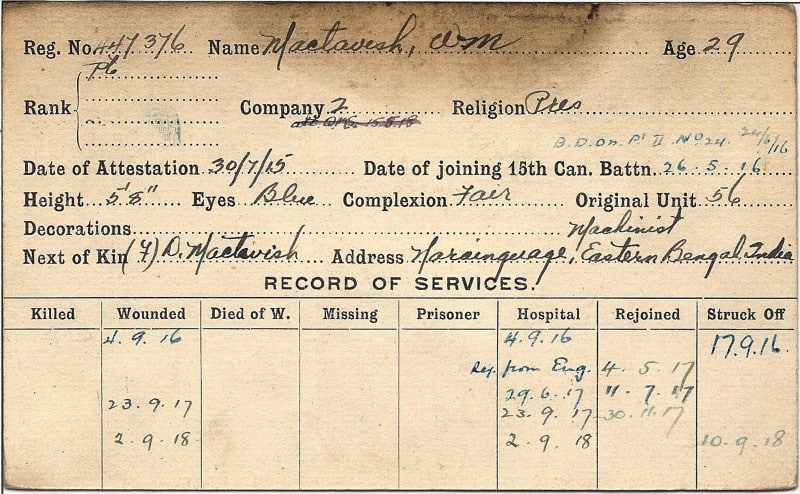 Reg. No. 447376 Name Mactavish, Wm Age 29
Pte
Rank Company 2 Religion Pres
15.8.18
B.D. on Pt II No 24. 24/6/16
Date of Attestation 30/7/15 Date of joining 15th Can. Battn. 26.5.16
Height 5'8" Eyes Blue Complexion Fair Original Unit 56
Decorations Machinist
Next of Kin (F) D. Mactavish Address Naraingunge, Eastern Bengal, India
RECORD OF SERVICES.
Killed Wounded Died of W. Missing Prisoner Hospital Rejoined Struck Off
4.9.16 4.9.16 17.9.16
from Eng. 4.5.17
29.6.17 11.7.17
23.9.17 23.9.17 30.11.17
2.9.18 2.9.18 10.9.18